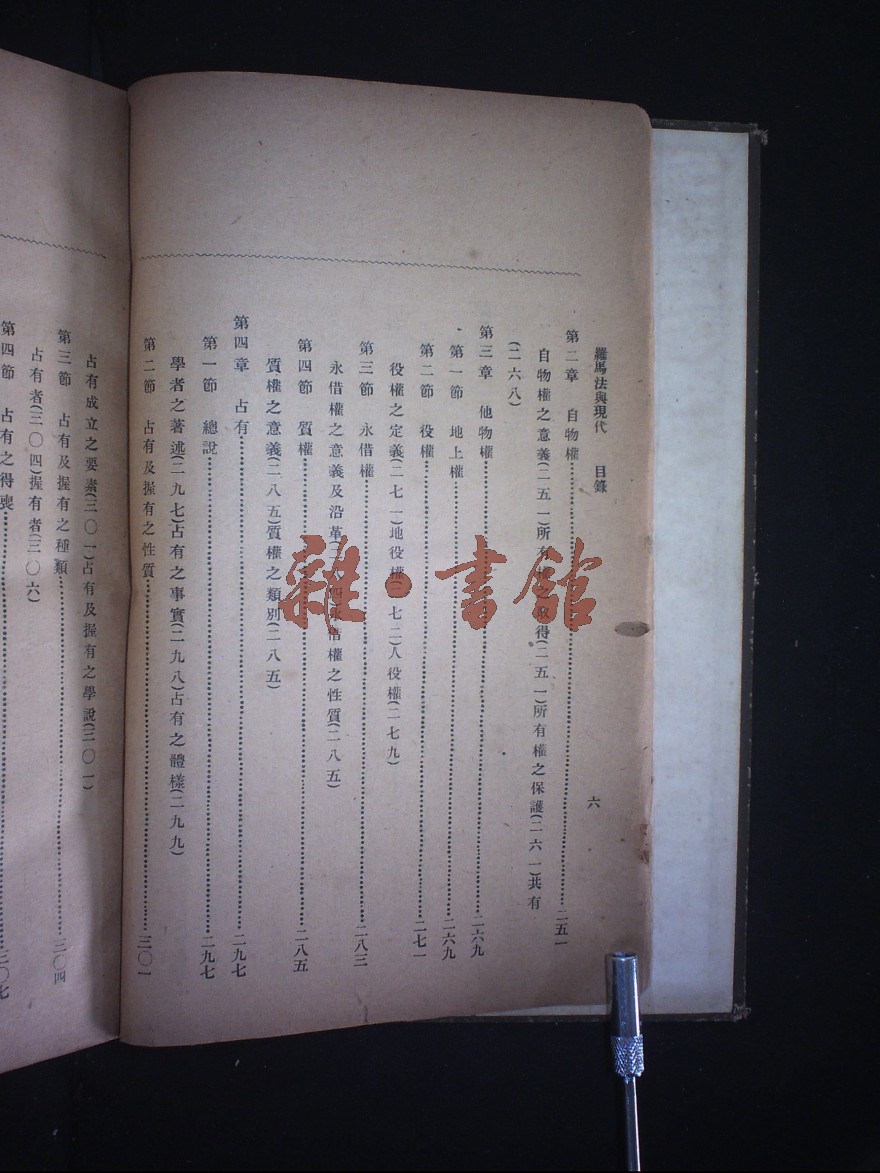 羅馬法與現代 目錄 六
第二章 自物權……二五一
自物權之意義(二五一)所有權之取得(二五一)所有權之保護(二六一)共有
(二六八)
第三章 他物權……二六九
第一節 地上權……二六九
第二節 役權……二七一
役權之定義(二七一)地役權(二七二)人役權(二七九)
第三節 永借權……二八三
永借權之意義及沿革永借權之性質(二八五)
第四節 質權……二八五
質權之意義(二八五)質權之類別(二八五)
第四章 占有……二九七
第一節 總說……二九七
學者之著述(二九七)占有之事實(二九八)占有之體樣(二九九)
第二節 占有及握有之性質……三〇一
占有成立之要素(三〇一)占有及握有之學說(三〇一)
第三節 占有及握有之種類……三〇四
占有者(三〇四)握有者(三〇六)
第四節 占有之得喪……三〇七
雜·書館